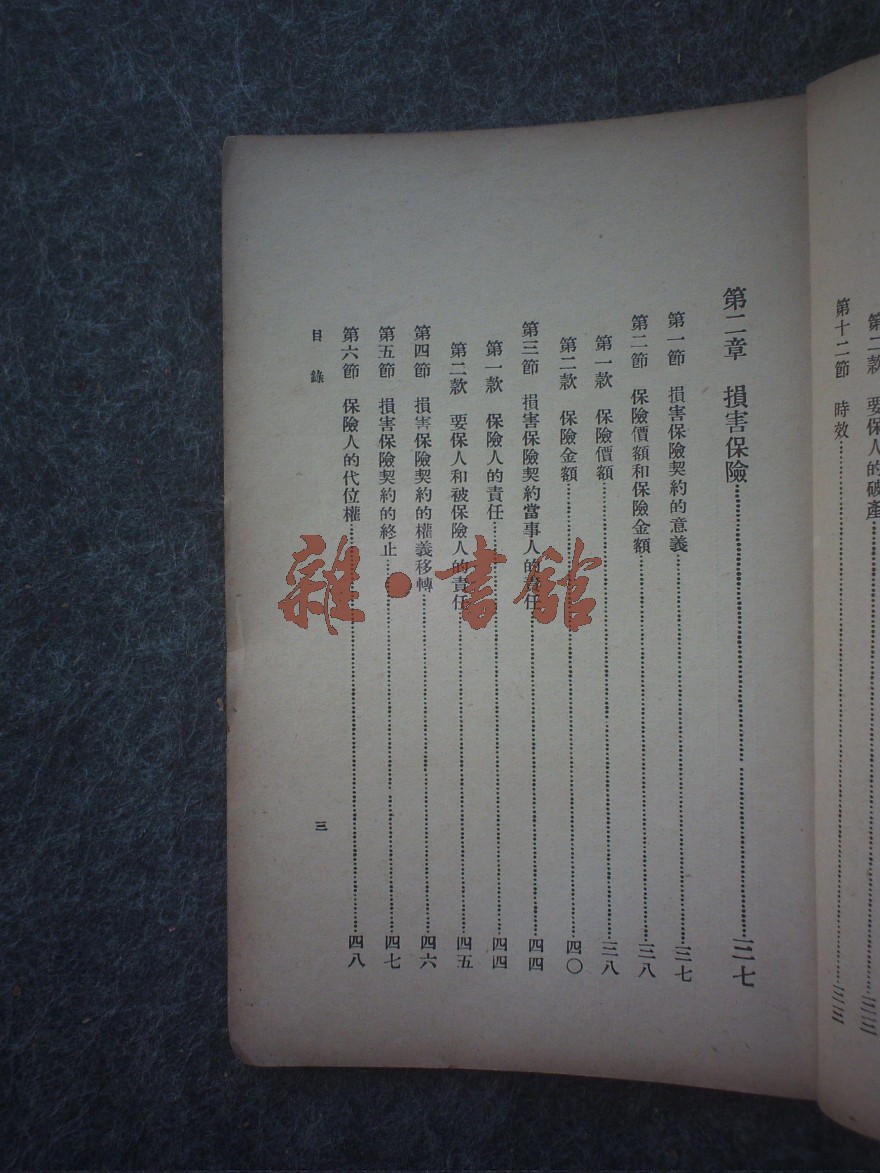 第二款　要保人的破產……三三
第十二節　時效……三三
第二章　損害保險……三七
第一節　損害保險契約的意義……三七
第二節　保險價額和保險金額……三八
第一款　保險價額……三八
第二款　保險金額……四〇
第三節　損害保險契約當事人的責任……四四
第一款　保險人的責任……四四
第二款　要保人和被保險人的責任……四五
第四節　損害保險契約的權義移轉……四六
第五節　損害保險契約的終止……四七
第六節　保險人的代位權……四八
目錄　三
雜·書館